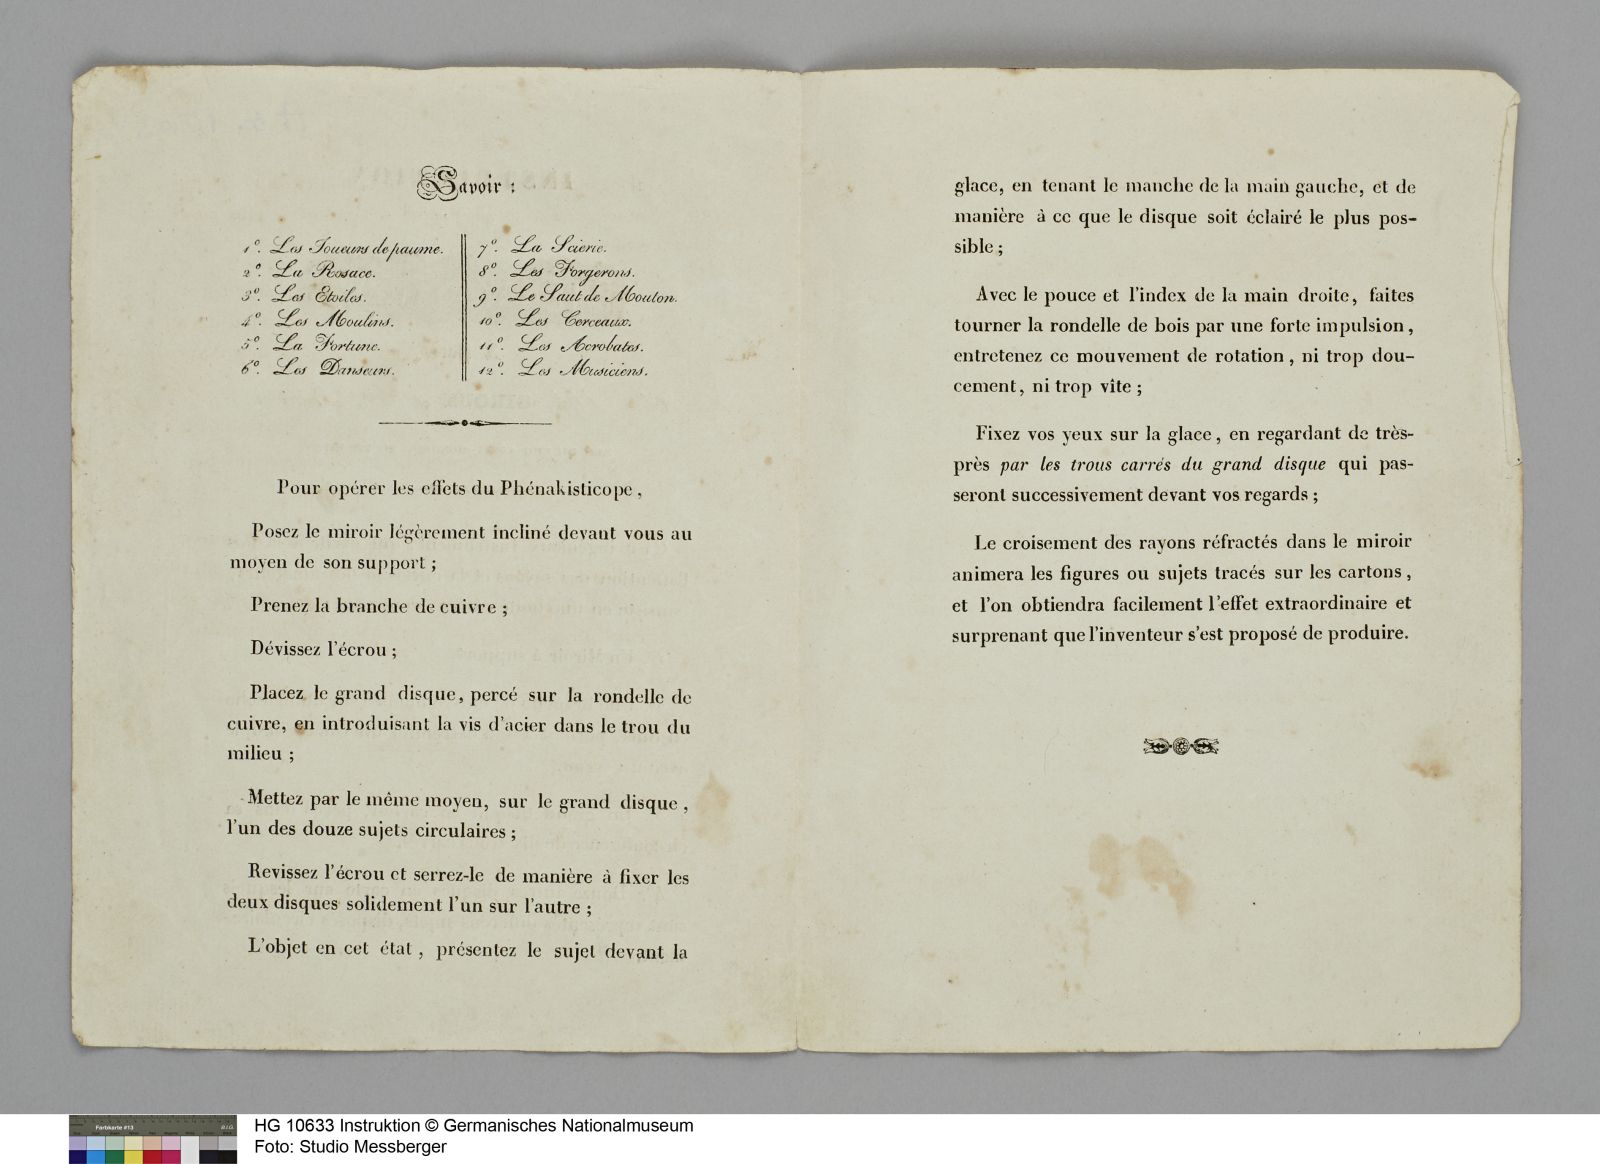 Savoir :
1º. Les Joueurs de paume.
2º. La Rosace.
3º. Les Etoiles.
4º. Les Moulins.
5º. La Fortune.
6º. Les Danseurs.
7º. La Scierie.
8º. Les Forgerons.
9º. Le Saut de Mouton.
10º. Les Cerceaux.
11º. Les Acrobates.
12º. Les Musiciens.
Pour opérer les effets du Phénakisticope ,
Posez le miroir légèrement incliné devant vous au
moyen de son support ;
Prenez la branche de cuivre ;
Dévissez l'écrou ;
Placez le grand disque, percé sur la rondelle de
cuivre, en introduisant la vis d'acier dans le trou du
milieu ;
Mettez par le même moyen, sur le grand disque ,
l'un des douze sujets circulaires ;
Revissez l'écrou et serrez-le de manière à fixer les
deux disques solidement l'un sur l'autre ;
L'objet en cet état , présentez le sujet devant la
glace, en tenant le manche de la main gauche, et de
manière à ce que le disque soit éclairé le plus pos-
sible ;
Avec le pouce et l'index de la main droite, faites
tourner la rondelle de bois par une forte impulsion ,
entretenez ce mouvement de rotation , ni trop dou-
cement, ni trop vîte ;
Fixez vos yeux sur la glace , en regardant de très-
près par les trous carrés du grand disque qui pas-
seront successivement devant vos regards ;
Le croisement des rayons réfractés dans le miroir
animera les figures ou sujets tracés sur les cartons ,
et l'on obtiendra facilement l'effet extraordinaire et
surprenant que l'inventeur s'est proposé de produire.
Farbkarte #13
B.I.G.
HG 10633 Instruktion © Germanisches Nationalmuseum
Foto: Studio Messberger